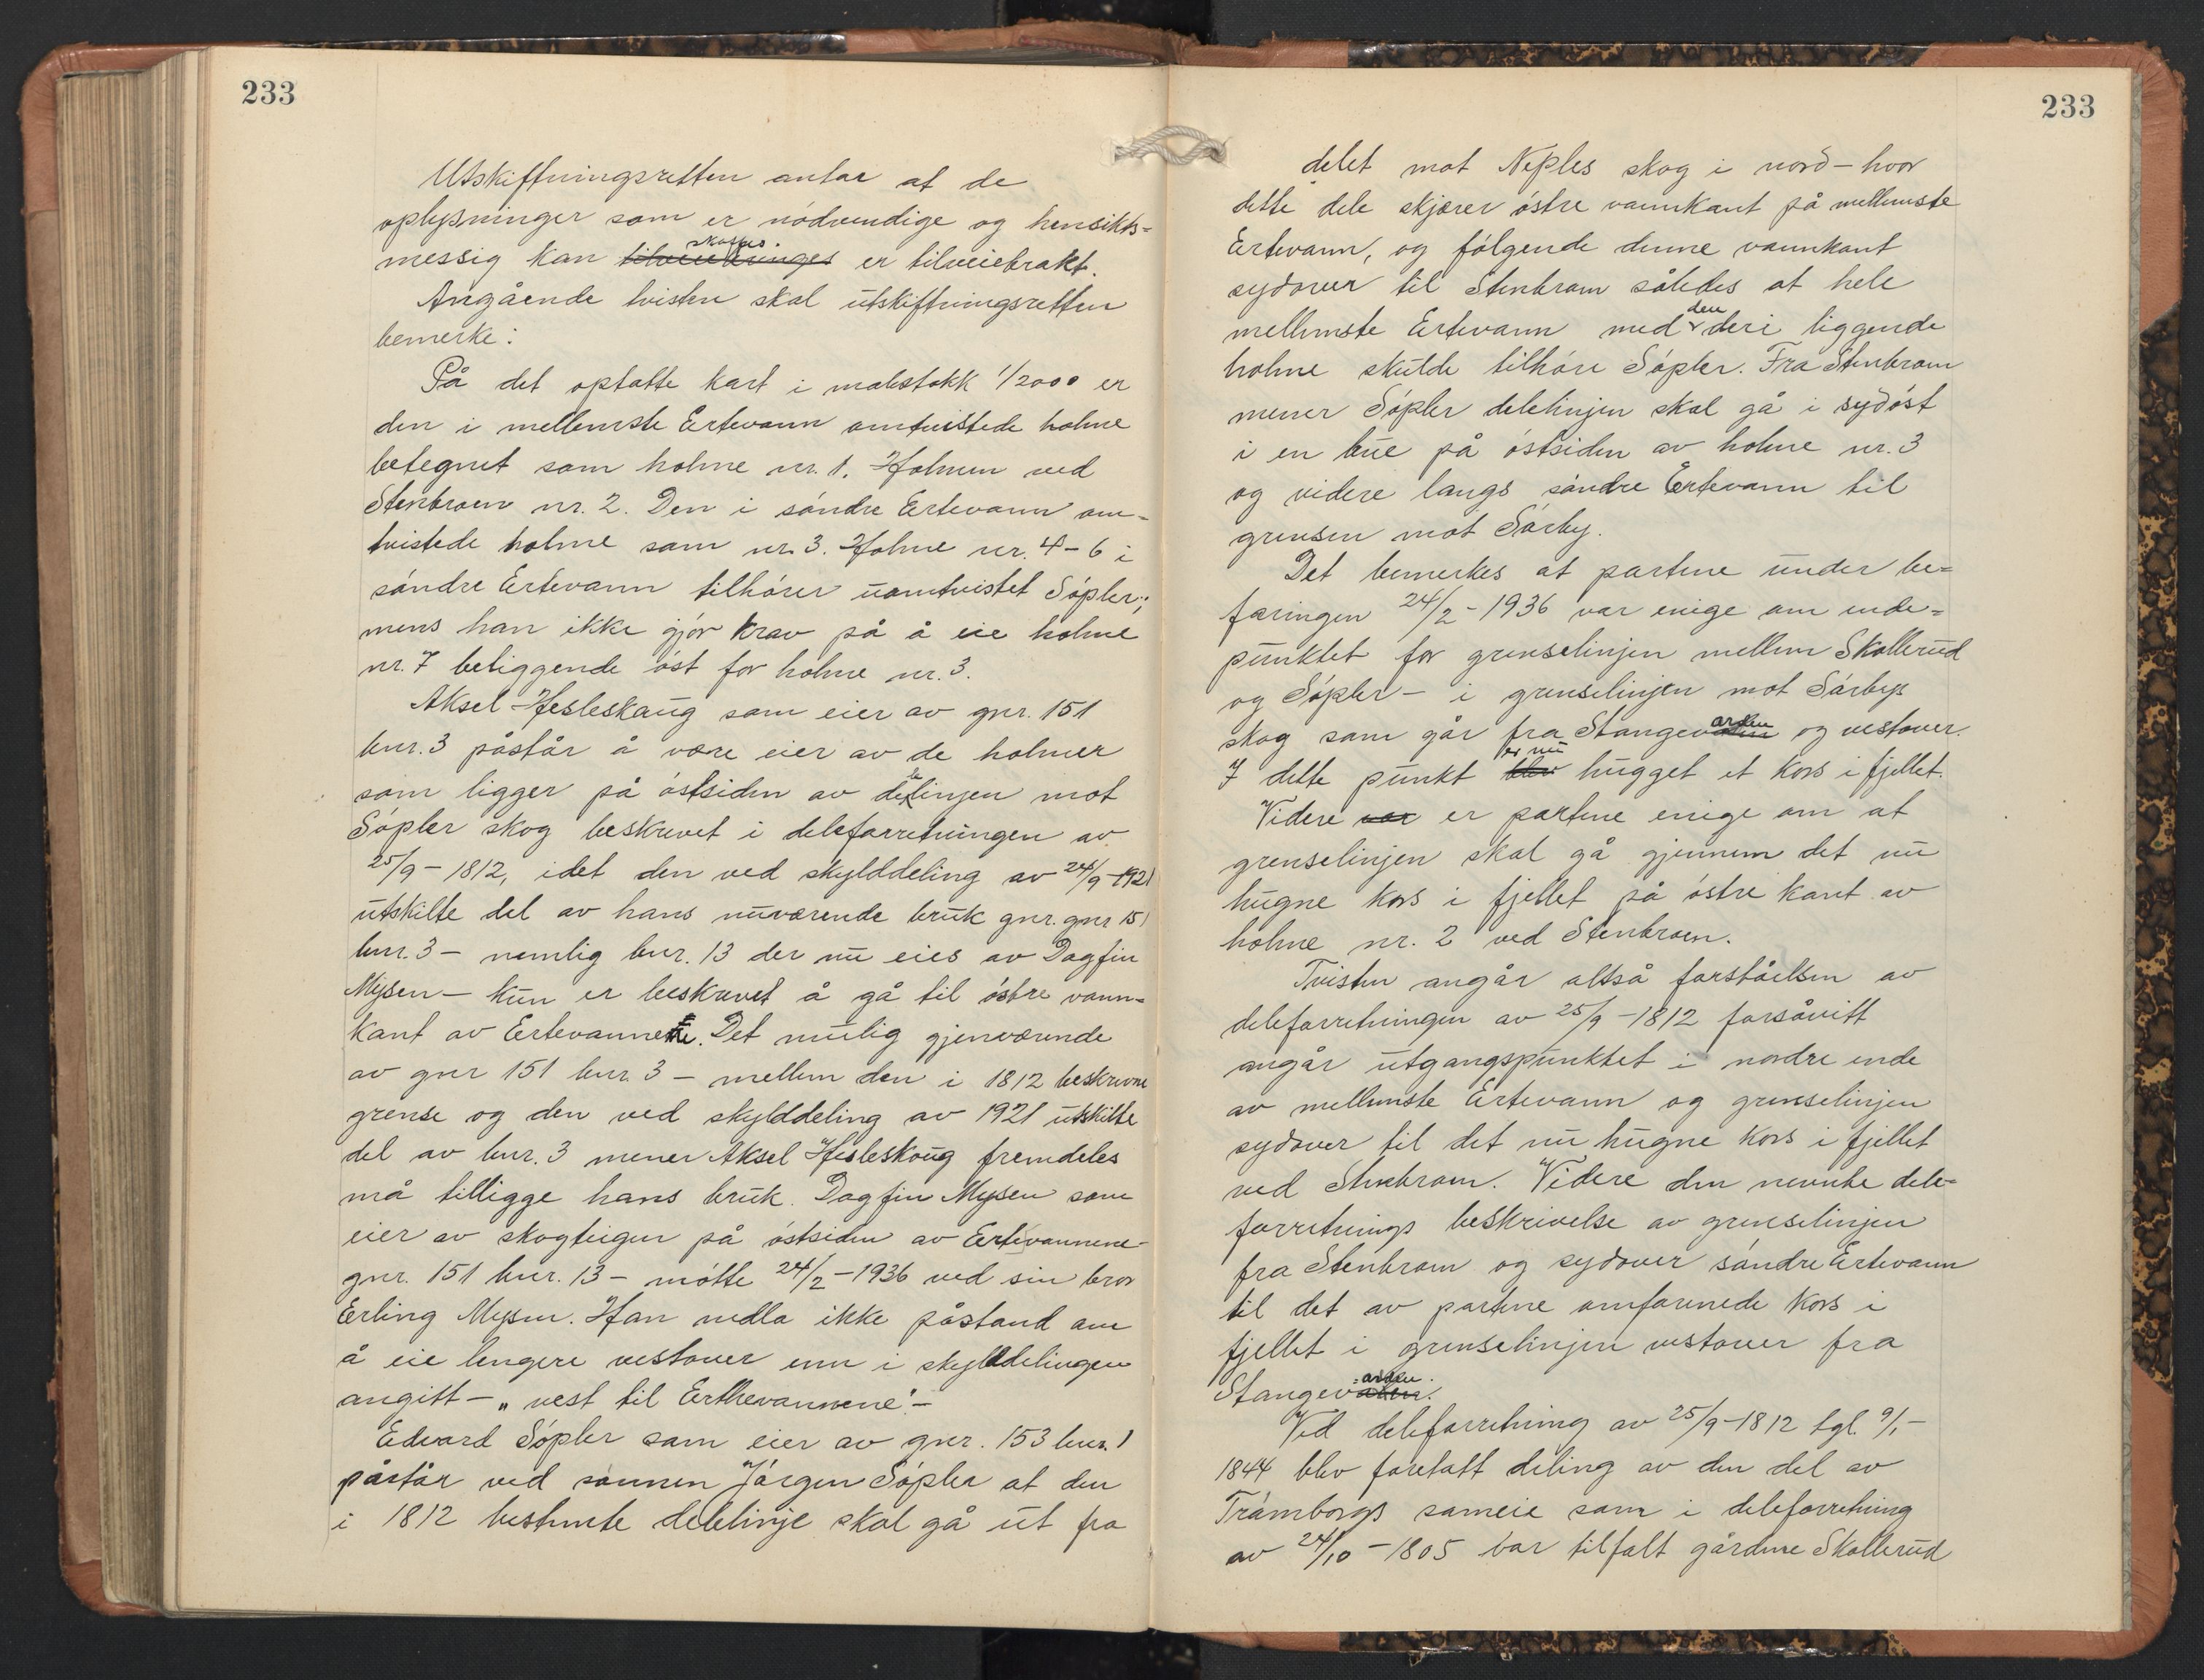 233
Utskiftningsretten antar at de
oplysninger som er nødvendige og hensikts-
messig kan tilveiebringes skaffes er tilveiebrakt.
Angående tvisten skal utskiftningsretten
bemerke:
På det optatte kart i målestokk 1/2000 er
den i mellemste Ertevann omtvistede holme
betegnet som holme nr. 1. Holmen ved
Stenbroen nr. 2. Den i søndre Ertevann om-
tvistede holme som nr. 3. Holme nr. 4-6 i
søndre Ertevann tilhører uomtvistet Søpler;
mens han ikke gjør krav på å eie holme
nr. 7 beliggende øst for holme nr. 3.
Aksel Hesleskaug som eier av gnr. 151
bnr. 3 påstår å være eier av de holmer
som ligger på østsiden av delelinjen mot
Søpler skog beskrevet i deleforretningen av
25/9-1812, idet den ved skylddeling av 24/9-1921
utskilte del av hans nuværende bruk gnr. gnr 151
bnr. 3 - nemlig bnr. 13 der nu eies av Dagfin
Mysen - kun er beskrevet å gå til østre vann-
kant av Ertevannene. Det mulig gjenværende
av gnr 151 bnr. 3 - mellem den i 1812 beskrevne
grense og den ved skylddeling av 1921 utskilte
del av bnr. 3 mener Aksel Hesleskaug fremdeles
må tilligge hans bruk. Dagfin Mysen som
eier av skogteigen på østsiden av Ertevannene
gnr. 151 bnr. 13 - møtte 24/2-1936 ved sin bror
Erling Mysen. Han nedla ikke påstand om
å eie lengere vestover enn i skylddelingen
angitt - „vest til Erthevannene" -
Edvard Søpler som eier av gnr. 153 bnr. 1
påstår ved sønnen Jørgen Søpler at den
i 1812 bestemte delelinje skal gå ut fra
233
delet mot Neples skog i nord - hvor
dette dele skjærer østre vannkant på mellemste
Ertevann, og følgende denne vannkant
sydover til Stenbroen således at hele
mellemste Ertevann med den deri liggende
holme skulde tilhøre Søpler. Fra Stenbroen
mener Søpler delelinjen skal gå i sydøst
i en bue på østsiden av holme nr. 3
og videre langs søndre Ertevann til
grensen mot Sørby.
Det bemerkes at partene under be-
faringen 24/2-1936 var enige om ende-
punktet for grenselinjen mellem Skollerud
og Søpler - i grenselinjen mot Sørbys
skog som går fra Stangevollen arden og vestover.
I dette punkt blev er nu hugget et kors i fjellet.
Videre var er partene enige om at
grenselinjen skal gå gjennem det nu
hugne kors i fjellet på østre kant av
holme nr. 2 ved Stenbroen.
Tvisten angår altså forståelsen av
deleforretningen av 25/9-1812 forsåvitt
angår utgangspunktet i nordre ende
av mellemste Ertevann og grenselinjen
sydover til det nu hugne kors i fjellet
ved Stenbroen. Videre den nevnte dele-
forretnings beskrivelse av grenselinjen
fra Stenbroen og sydover søndre Ertevann
til det av partene omforenede kors i
fjellet i grenselinjen vestover fra
Stangev arden.
Ved deleforretning av 25/9-1812 tgl. 9/1-
1844 blev foretatt deling av den del av
Trømborgs sameie som i deleforretning
av 24/10-1805 var tilfalt gårdene Skollerud